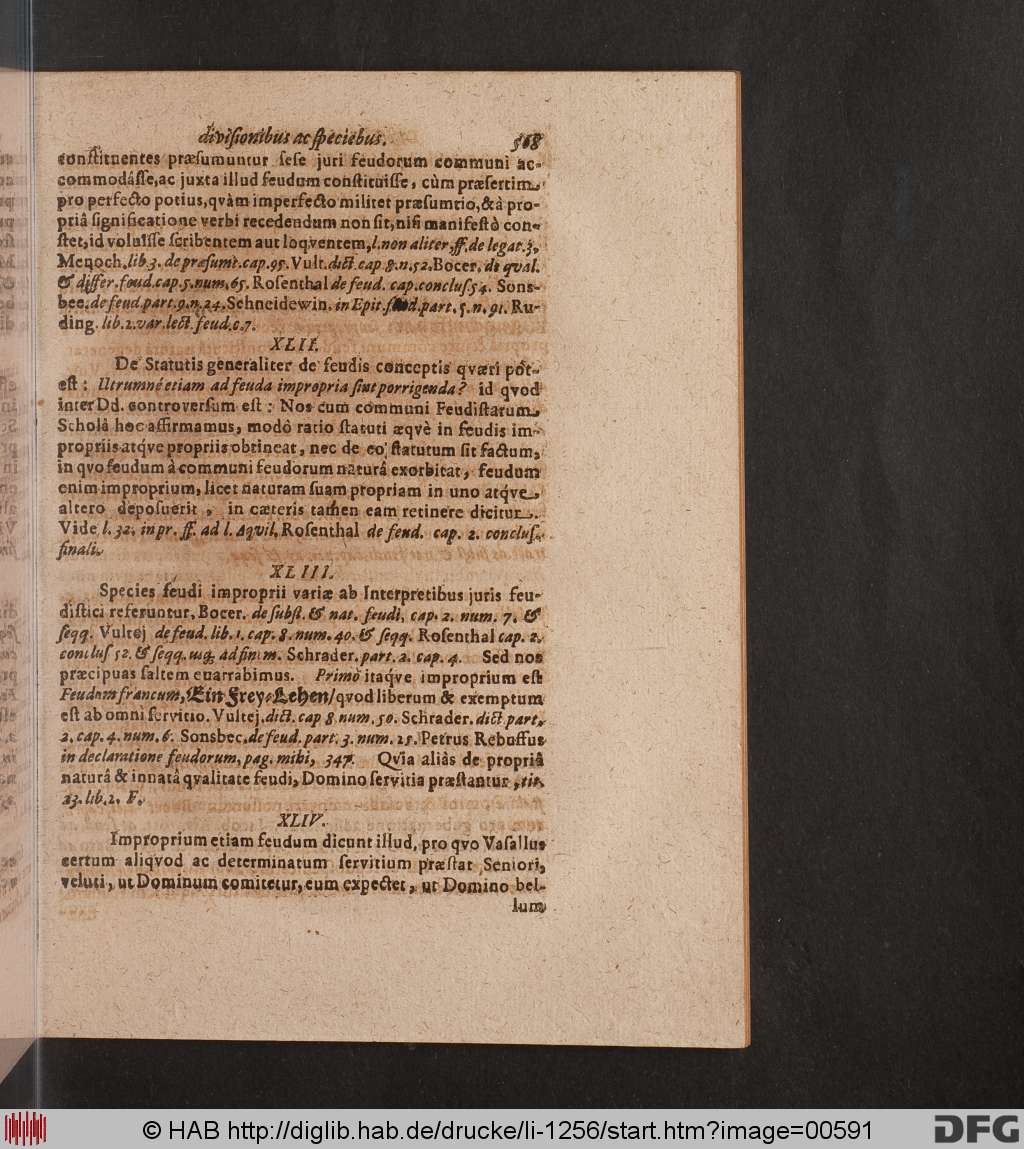 divisionibus ac speciebus. 568
constituentes præsumuntur sese juri feudorum communi ac-
commodásse, ac juxta illud feudum constituisse, cùm præsertim
pro perfecto potius, qvàm imperfecto militet præsumtio, & à pro-
priâ significatione verbi recedendum non sit, nisi manifestò con-
stet, id voluisse scribentem aut loqventem, l. non aliter, ff. de legat. 3.
Menoch. lib. 3. de præsumt. cap. 95. Vult. dict. cap. 8. n. 52. Bocer. de qval.
& differ. feud. cap. 5. num. 65. Rosenthal de feud. cap. conclus. 54. Sons-
bec. de feud. part. 9. n. 24. Schneidewin. in Epit. feud. part. 5. n. 91. Ru-
ding. lib. 2. var. lect. feud. c. 7.
XLII.
De Statutis generaliter de feudis conceptis qværi pot-
est: Utrumné etiam ad feuda impropria sint porrigenda? id qvod
inter Dd. controversum est: Nos cum communi Feudistarum
Scholâ hoc affirmamus, modò ratio statuti æqvè in feudis im-
propriis atqve propriis obtineat, nec de eo statutum sit factum,
in qvo feudum à communi feudorum naturâ exorbitat, feudum
enim improprium, licet naturam suam propriam in uno atqve
altero deposuerit, in cæteris tamen eam retinere dicitur.
Vide l. 32. in pr. ff. ad l. Aqvil. Rosenthal de feud. cap. 2. conclus.
finali.
XLIII.
Species feudi improprii variæ ab Interpretibus juris feu-
distici referuntur, Bocer. de subst. & nat. feudi, cap. 2. num. 7. &
seqq. Vultej de feud. lib. 1. cap. 8. num. 40. & seqq. Rosenthal cap. 2.
conclus 52. & seqq. usq; ad finem. Schrader. part. 2. cap. 4. Sed nos
præcipuas saltem enarrabimus. Primò itaqve improprium est
Feudum francum, Ein Frey-Lehen/ qvod liberum & exemptum
est ab omni servitio. Vultej. dict. cap 8. num. 50. Schrader. dict part.
2. cap. 4. num. 6. Sonsbec. de feud. part. 3. num. 25. Petrus Rebuffus
in declaratione feudorum, pag. mihi, 347. Qvia aliàs de propriâ
naturâ & innatâ qvalitate feudi, Domino servitia præstantur, tit.
23. lib. 2. F.
XLIV.
Improprium etiam feudum dicunt illud, pro qvo Vasallus
certum aliqvod ac determinatum servitium præstat Seniori,
veluti, ut Dominum comitetur, eum expectet, ut Domino bel-
lum
© HAB http://diglib.hab.de/drucke/li-1256/start.htm?image=00591
DFG